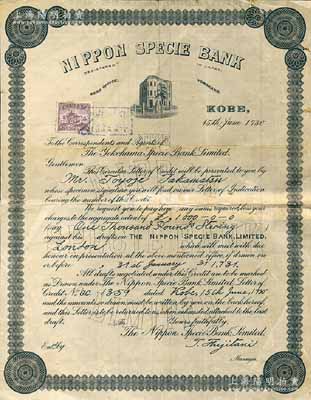 上海阳明拍卖
NIPPON SPECIE BANK
REGISTERED IN JAPAN.
HEAD OFFICE, YOKOHAMA.
KOBE,
15th June
To the Correspondents and Agents of
The Yokohama Specie Bank Limited.
Gentlemen
This Circular Letter of Credit will be presented to you by
Mr.
whose specimen signature you will find in our Letter of Indication
bearing the number of this Credit.
We request you to pay him any sums required, less your
charges to the aggregate extent of £ 1,000-0-0
say One Thousand Pounds Sterling
against his drafts on THE NIPPON SPECIE BANK, LIMITED,
London which will meet with due
honour on presentation at the above mentioned office, if drawn on
or before 31st January
All drafts negotiated under this Credit are to be marked
as Drawn under The Nippon Specie Bank Limited Letter of
Credit No. dated Kobe, 15th June,
and the amounts so drawn must be written, by you, on the back hereof,
and this Letter is to be returned to us, when exhausted, attached to the last
draft.
Yours faithfully,
The Nippon Specie Bank, Limited.
Ent. by
Manager.